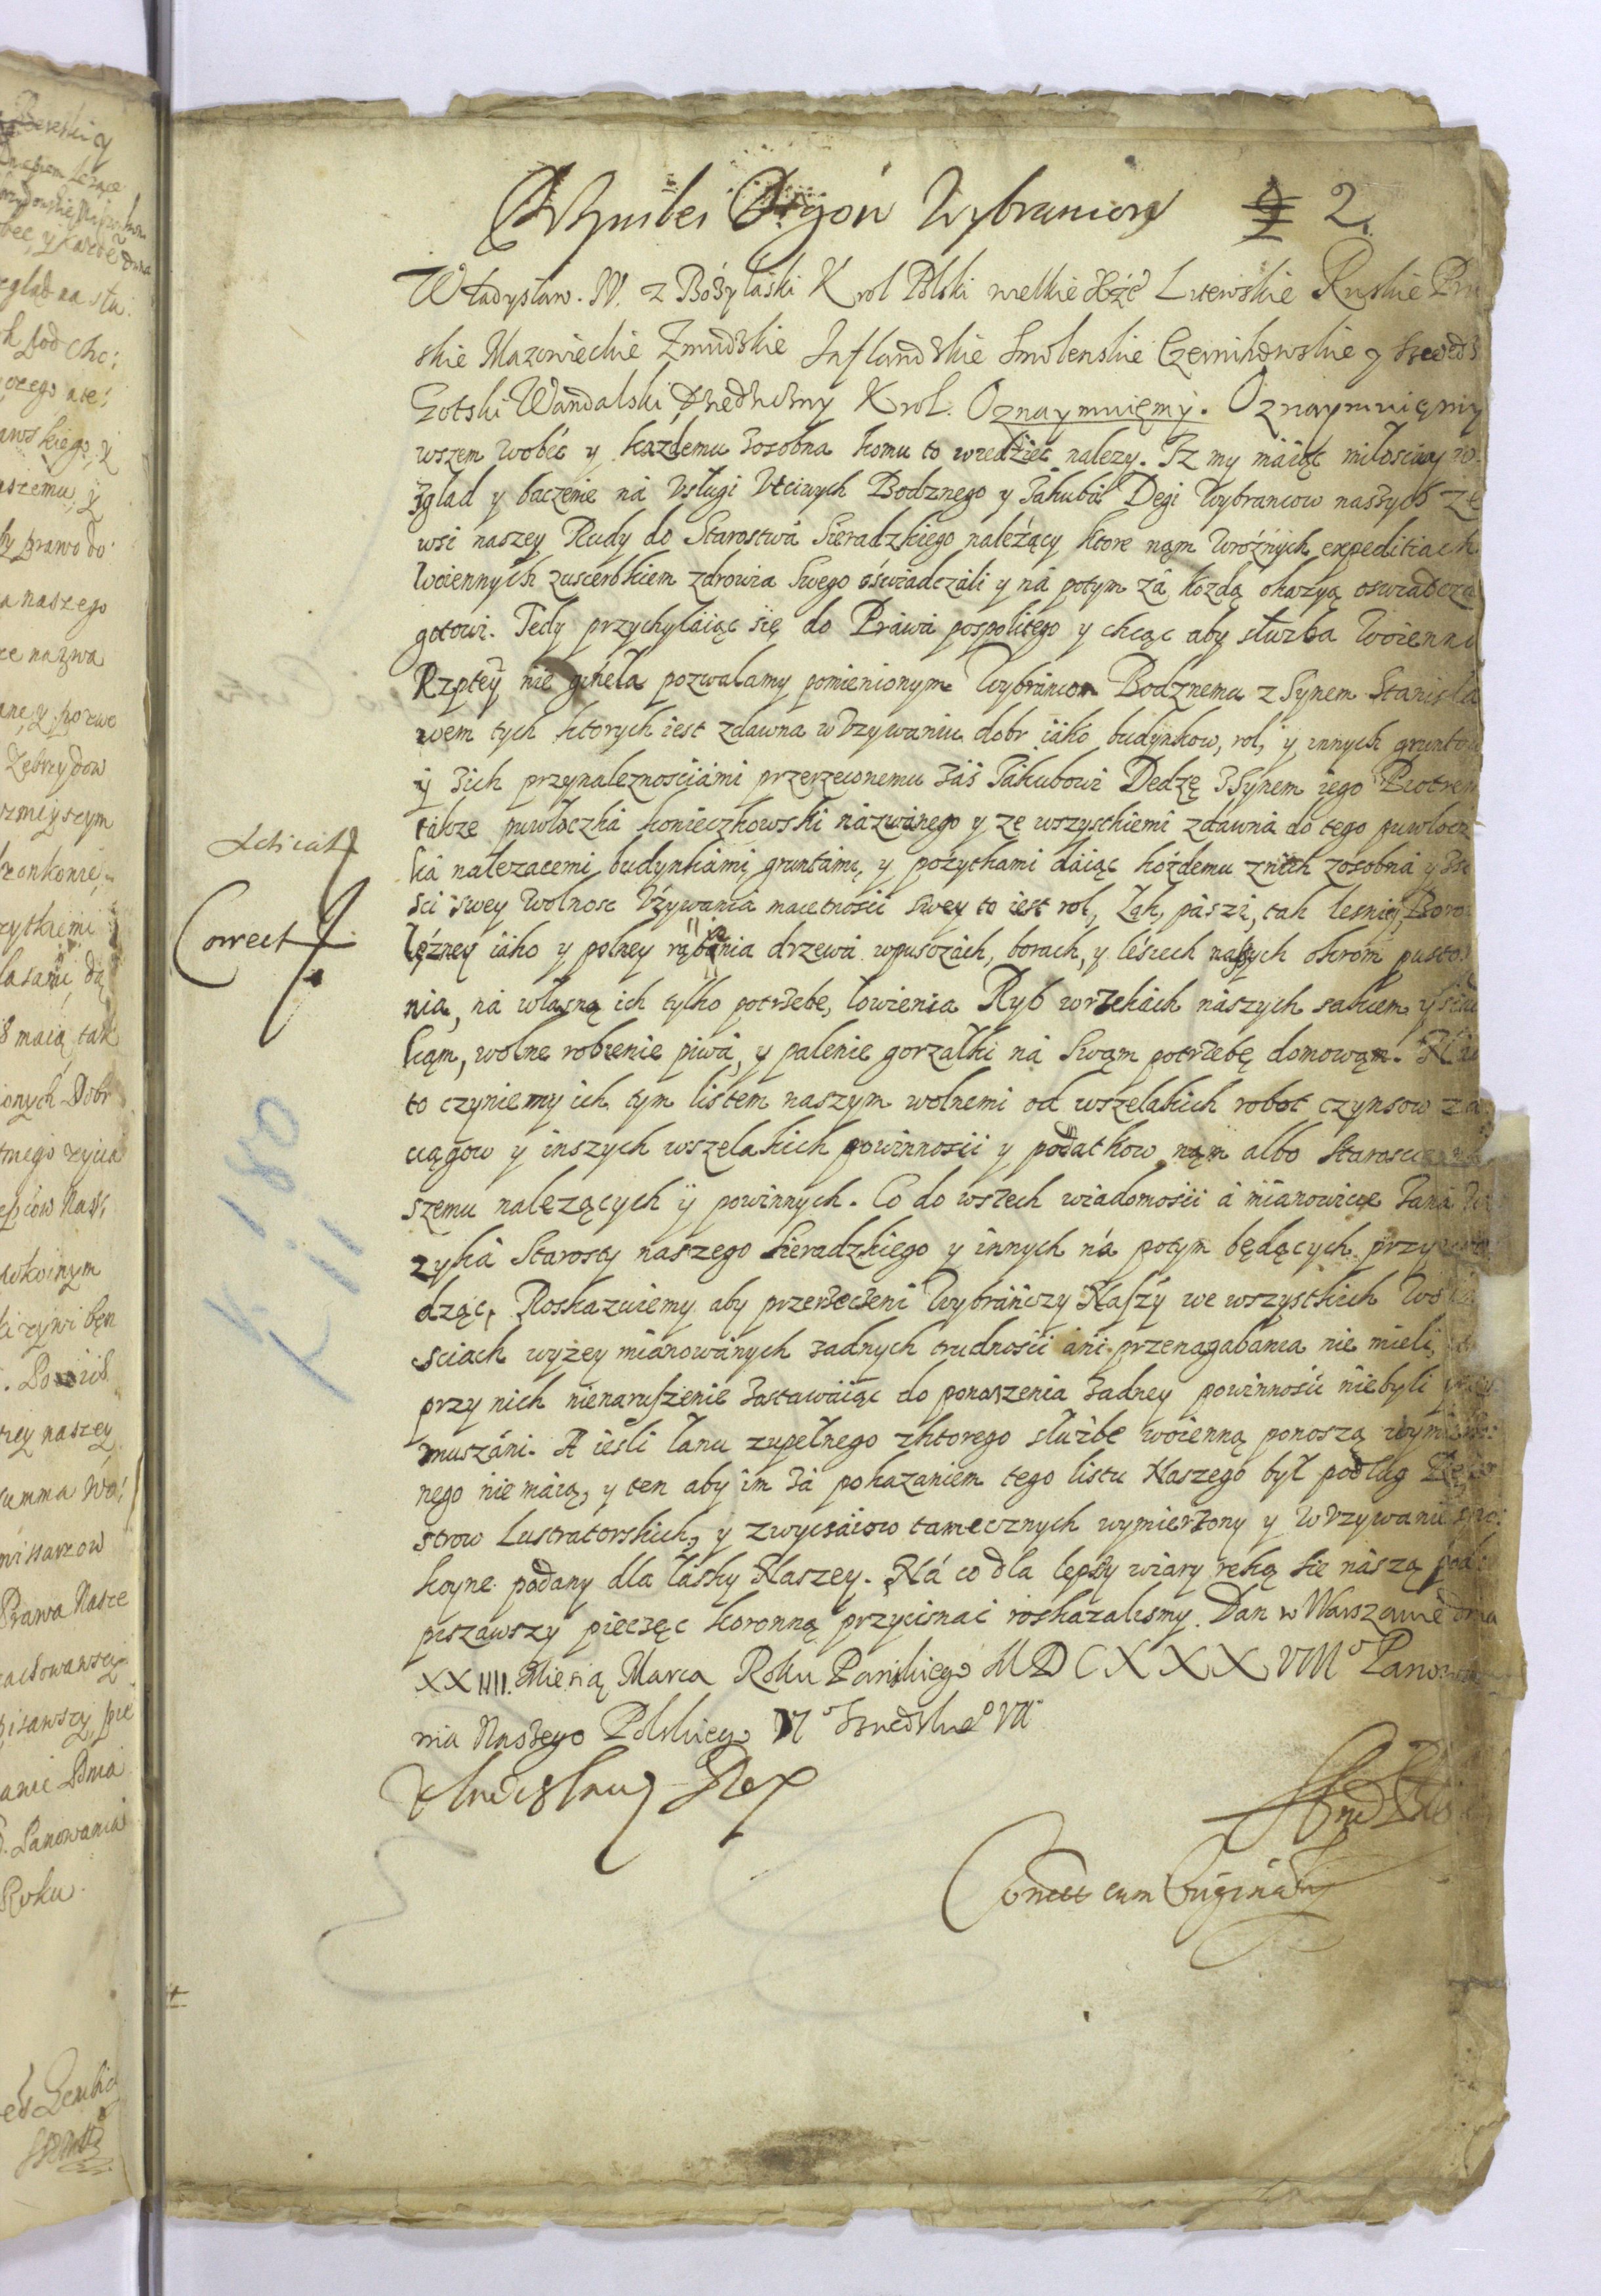 Przywilei Degow Wybrancow 2.
Władysław. IV. z Bożylaski Krol Polski wielkie Xże Litewskie Ruskie Pru
skie Mazowieckie Zmudzkie Inflandskie Smolenskie Czernihowskie y Szwedz
Gotski Wandalski Dziedziczny Krol. Oznaymuięmy. Oznaymuięmy
wszem wobéc y każdemu zosobna komu to wiedzieć nalezy. Iz my maiąc miłosciwy w
zglad y baczenie ná Vsługi Vtciwych Bodznego y Jakubá Degi Wybrancow naszych ze
wsi naszey Rudy do Starostwá Sieradzkiego należący ktore nąm wrożnych expeditiach
woiennych zuscerbkiem zdrowia swego oświadczáli y ná potym zá kozdą okazyą oswiadcza
gotowi. Tedy przychylaiąc się do Práwá pospolitego y chcąc aby służba woienna
Rzptey nie gineła pozwalamy pomienionym Wybrancom Bodznemu z Synem Stanisła
wem tych ktorych iest zdawna w Vzywaniu dobr iáko budynkow, rol, y innych gruntow
y zich przynaleznosciámi przerzeconemu záś Jákubowi Dedzę z Synem iego Piotrem
takze puwłoczka konieczkowski názwánego y ze wszystkiemi zdawná do tego puwłocz
ká nalezacemi budynkámi gruntámi, y pożytkami dáiąc kożdemu znich zosobná y
sci swey wolnosc Vżywania maietnosci swey to iest rol, Łąk, pászi, tak lesniey, Boro
lężney iáko y polney rąbania drzewá wpusczách, borach, y léśiech naszych okrom pusto
nia, ná własną ich tylko potrzebe, łowienia Ryb wrzekách nászych sakiem y sie
ćiąm, wolne robienie piwá, y palenie gorzałki ná swąm potrzebę domowąm.
to czyniemy ich tym listem naszym wolnemi od wszelakich robot czynsow za
ciągow y inszych wszelakich powinnosci y podatkow nąm albo Staroscie
szemu nalezących y powinnych. Co do wszech wiadomosci á miánowicie Janá
zyká Starosty naszego Sieradzkiego y innych ná potym będących przywo
dząc, Roskazuiemy aby przerzeczeni Wybráńczy Naszy we wszystkich Wolno
sciach wyżey miánowánych zadnych trudnosci áni przenagabania nie mieli,
przy nich nienaruszenie zastawáiąc do ponoszenia żadney powinnosci niebyli przy
muszáni. A iesli łanu zupełnego zktorego służbe woienną ponoszą wymierzo
nego nie máią, y ten aby im zá pokazaniem tego listu Naszego był podług Reie
strow Lustratorskich, y zwyczáiow tamecznych wymierzony y w Vzywanie spo
koyne podany dla łásky Naszey. Ná co dla lepszy wiary ręką sie naszą pod
piszawszy pieczęc koronną przycisnać roskazalismy. Dan w Warszawie dnia
XXIIII. Miesią Marca Roku Pańskiego MDCXXXVIII° Panowa
nia Naszego Polskiego VI° Szwedzkie° VII
Vladislaus Rex
Correct cum Originali
Correct
K. 180
K II